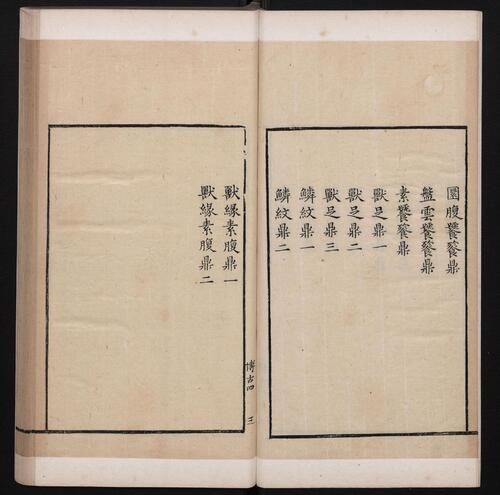 圜腹饕餮鼎
盤雲饕餮鼎
素饕餮鼎
獸足鼎一
獸足鼎二
獸足鼎三
鱗紋鼎一
鱗紋鼎二
博古四
三
獸緣素腹鼎一
獸緣素腹鼎二